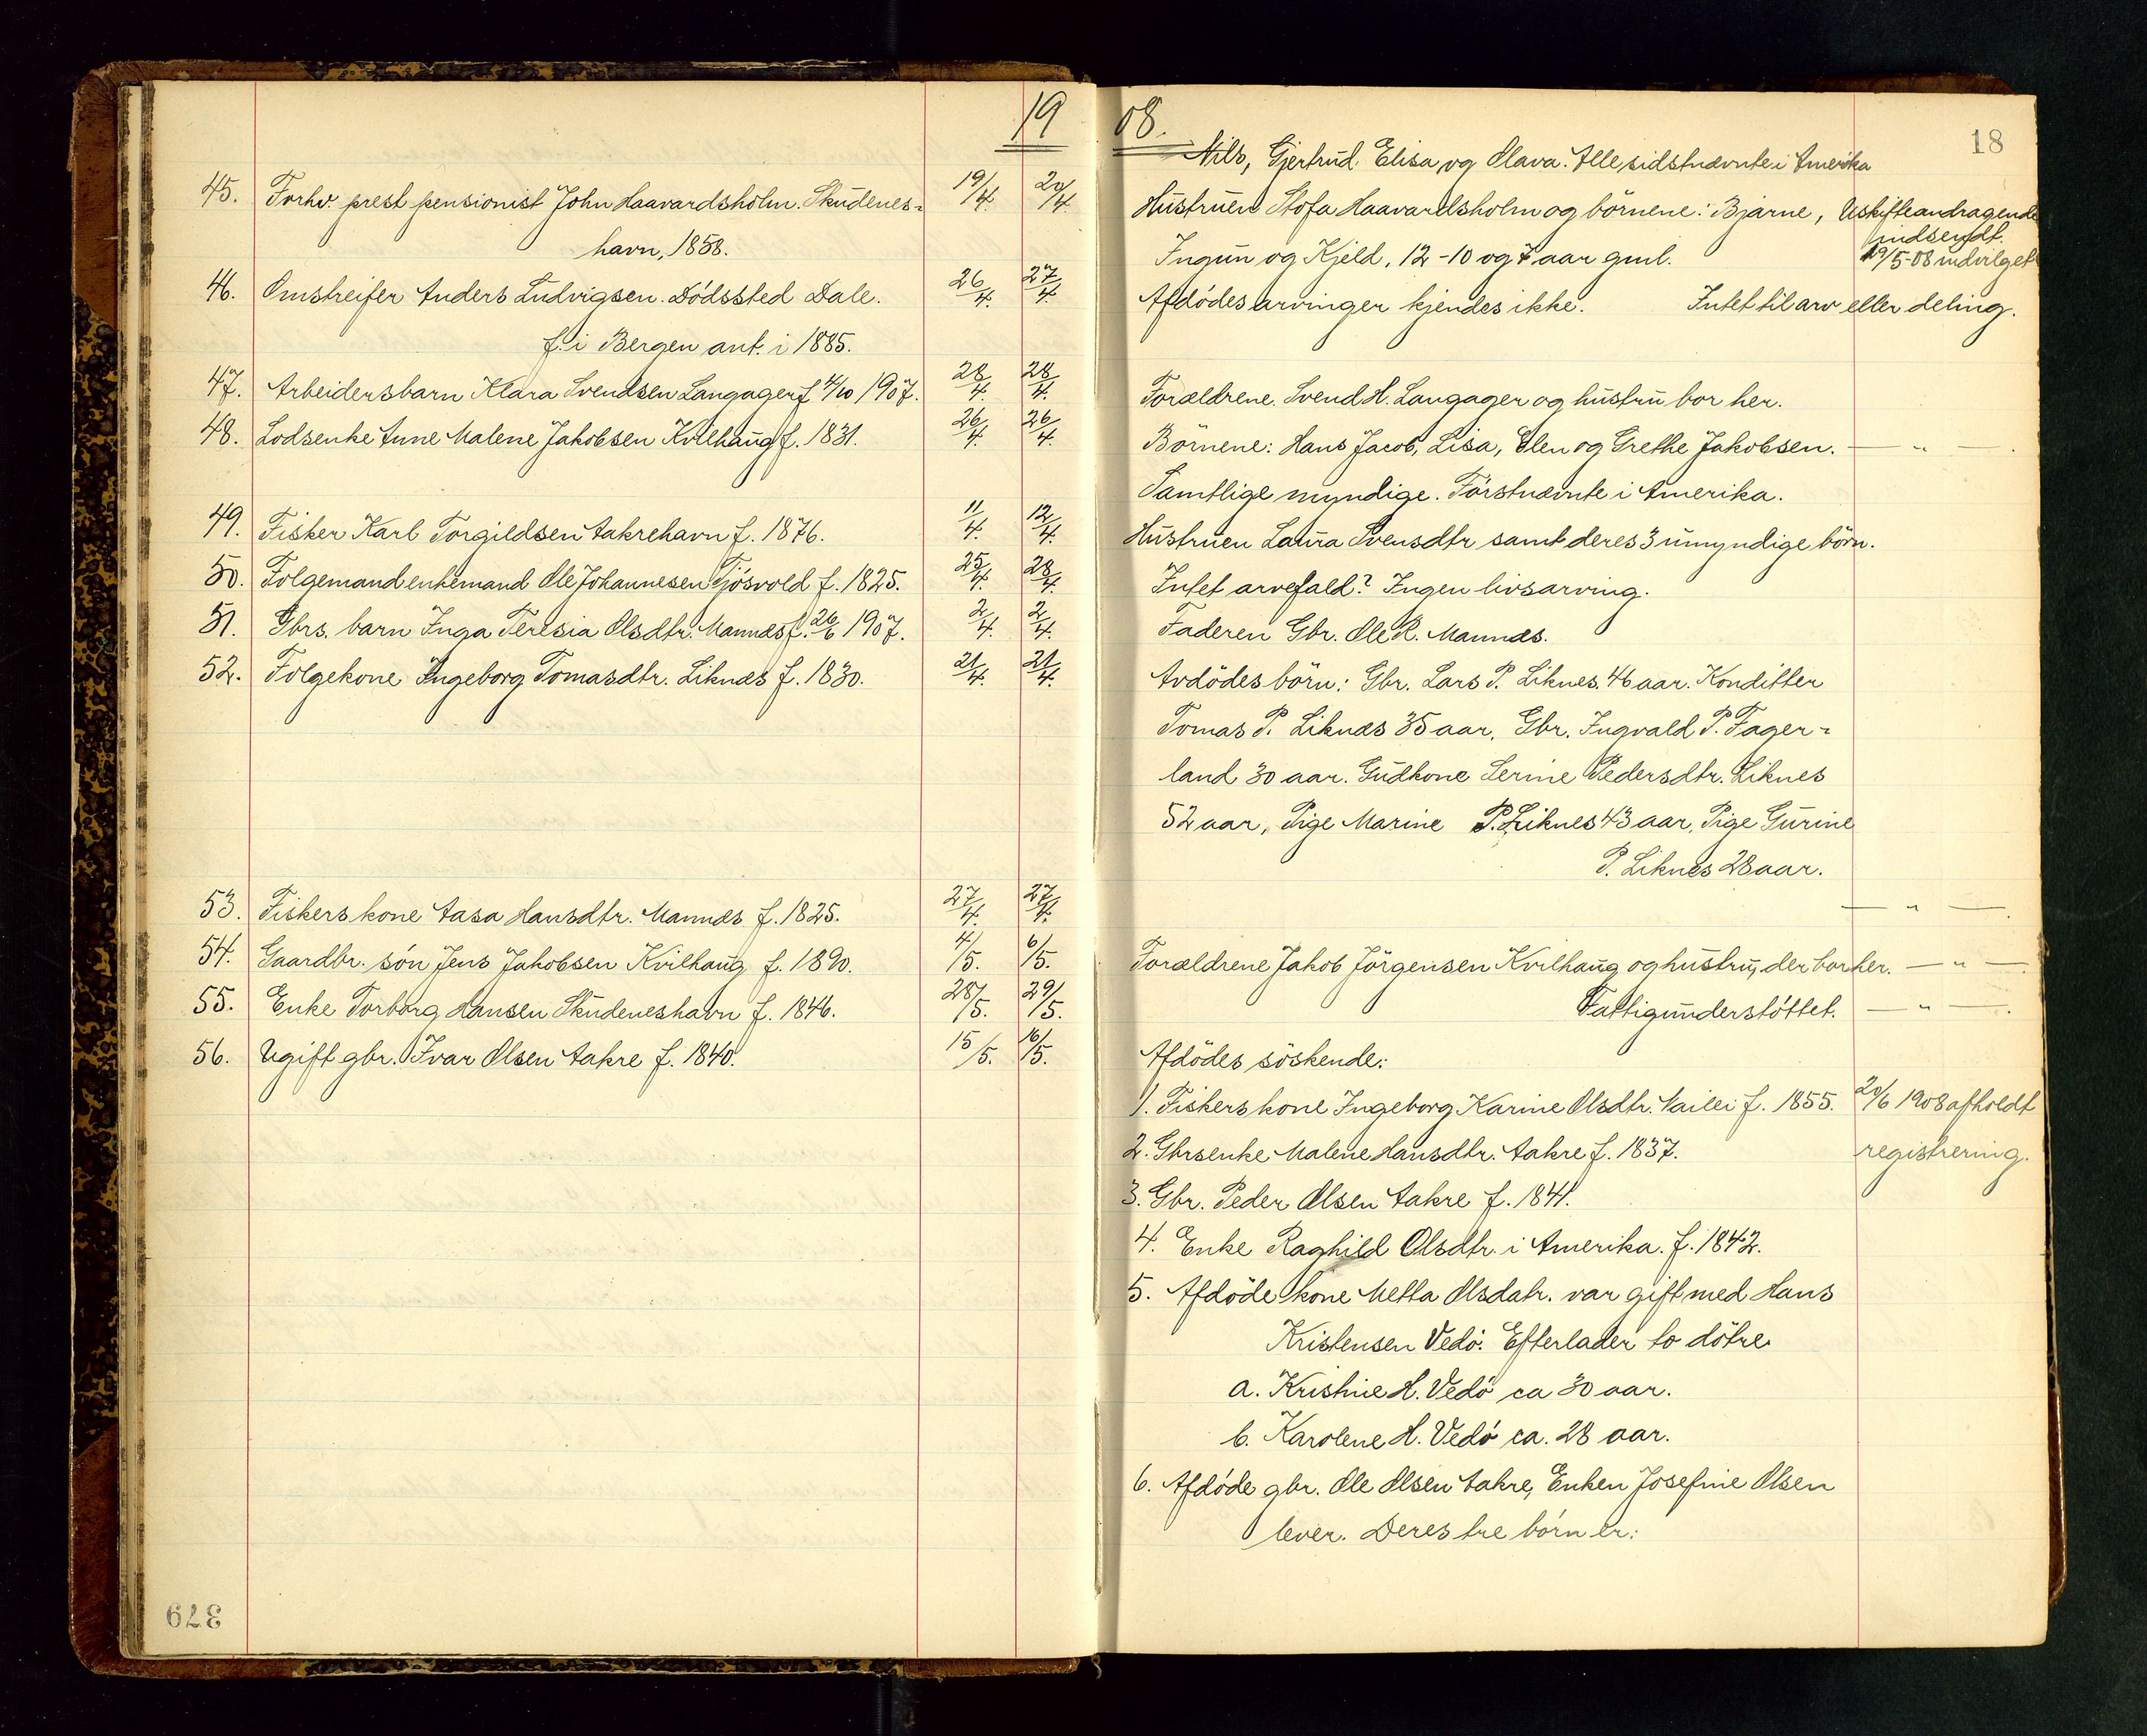 19 08.
18
Nils, Gjertrud Elisa og Olava. Alle sidstnævnte i Amerika
45. Forhv. prest pensionist John Haavardsholm. Skudenes- 19/4. 20/4.
havn, 1858.
Hustruen Stofa Haavardsholm og börnene: Bjarne, Uskifteandragende
indsendt.
Ingun og Kjeld, 12-10 og 7 aar gml. 19/5-08 indvilget
46. Omstreifer Anders Ludvigsen. Dödssted Dale. 26/4. 27/4
f. i Bergen ant. i 1885.
Afdödes arvinger kjendes ikke. Intet til arv eller deling.
47. Arbeidersbarn Klara Svendsen Langager f. 4/10 1907. 28/4. 28/4.
Forældrene. Svend H. Langager og hustru bor her.
48. Lodsenke Anne Malene Jakobsen Kvilhaug f. 1831. 26/4. 26/4.
Börnene: Hans Jacob, Lisa, Elen og Grethe Jakobsen. — " —.
Samtlige myndige. Förstnævnte i Amerika.
49. Fisker Karl Torgildsen Aakrehavn f. 1876. 11/4. 12/4.
Hustruen Laura Svensdtr samt deres 3 umyndige börn.
50. Folgemand enkemand Ole Johannesen Gjösvold f. 1825. 25/4. 28/4.
Intet arvefald? Ingen livsarving.
51. Gbrs. barn Inga Teresia Olsdtr. Mannes f. 26/6 1907. 2/4. 2/4.
Faderen Gbr. Ole R. Mannes.
52. Folgekone Ingeborg Tomasdtr. Liknes f. 1830. 21/4. 21/4.
Avdödes börn: Gbr. Lars P. Liknes. 46 aar. Konditter
Tomas P. Liknæs 35 aar. Gbr. Ingvald P. Fager-
land 30 aar. Gudkone Serine Pedersdtr. Liknes
52 aar, Pige Marine P. Liknes 43 aar, Pige Gurine
P. Liknes 28 aar.
53. Fiskers kone Aasa Hansdtr. Mannes f. 1825. 27/4. 27/4.
— " —.
54. Gaardbr. sön Jens Jakobsen Kvilhaug f. 1890. 4/5. 6/5.
Forældrene Jakob Jörgensen Kvilhaug og hustru, der bor her. — " —.
55. Enke Torborg Hansen Skudeneshavn f. 1846. 28/5. 29/5.
Fattigunderstöttet. — " —.
56. Ugift gbr. Ivar Olsen Aakre f. 1840. 15/5. 16/5.
Afdödes söskende:
1. Fiskers kone Ingeborg Karine Olsdtr. f. 1855. 20/6 1908 afholdt
2. Gbrsenke Malene Hansdtr. Aakre f. 1837. registrering.
3. Gbr. Peder Olsen Aakre f. 1841.
4. Enke Raghild Olsdtr. i Amerika. f. 1842.
5. Afdöde kone Metta Olsdatr. var gift med Hans
Kristensen Vedö. Efterlader to dötre
a. Kristine H. Vedö ca 30 aar.
b. Karolene H. Vedö ca. 28 aar.
6. Afdöde gbr. Ole Olsen Aakre, Enken Josefine Olsen
lever. Deres tre börn er:
379